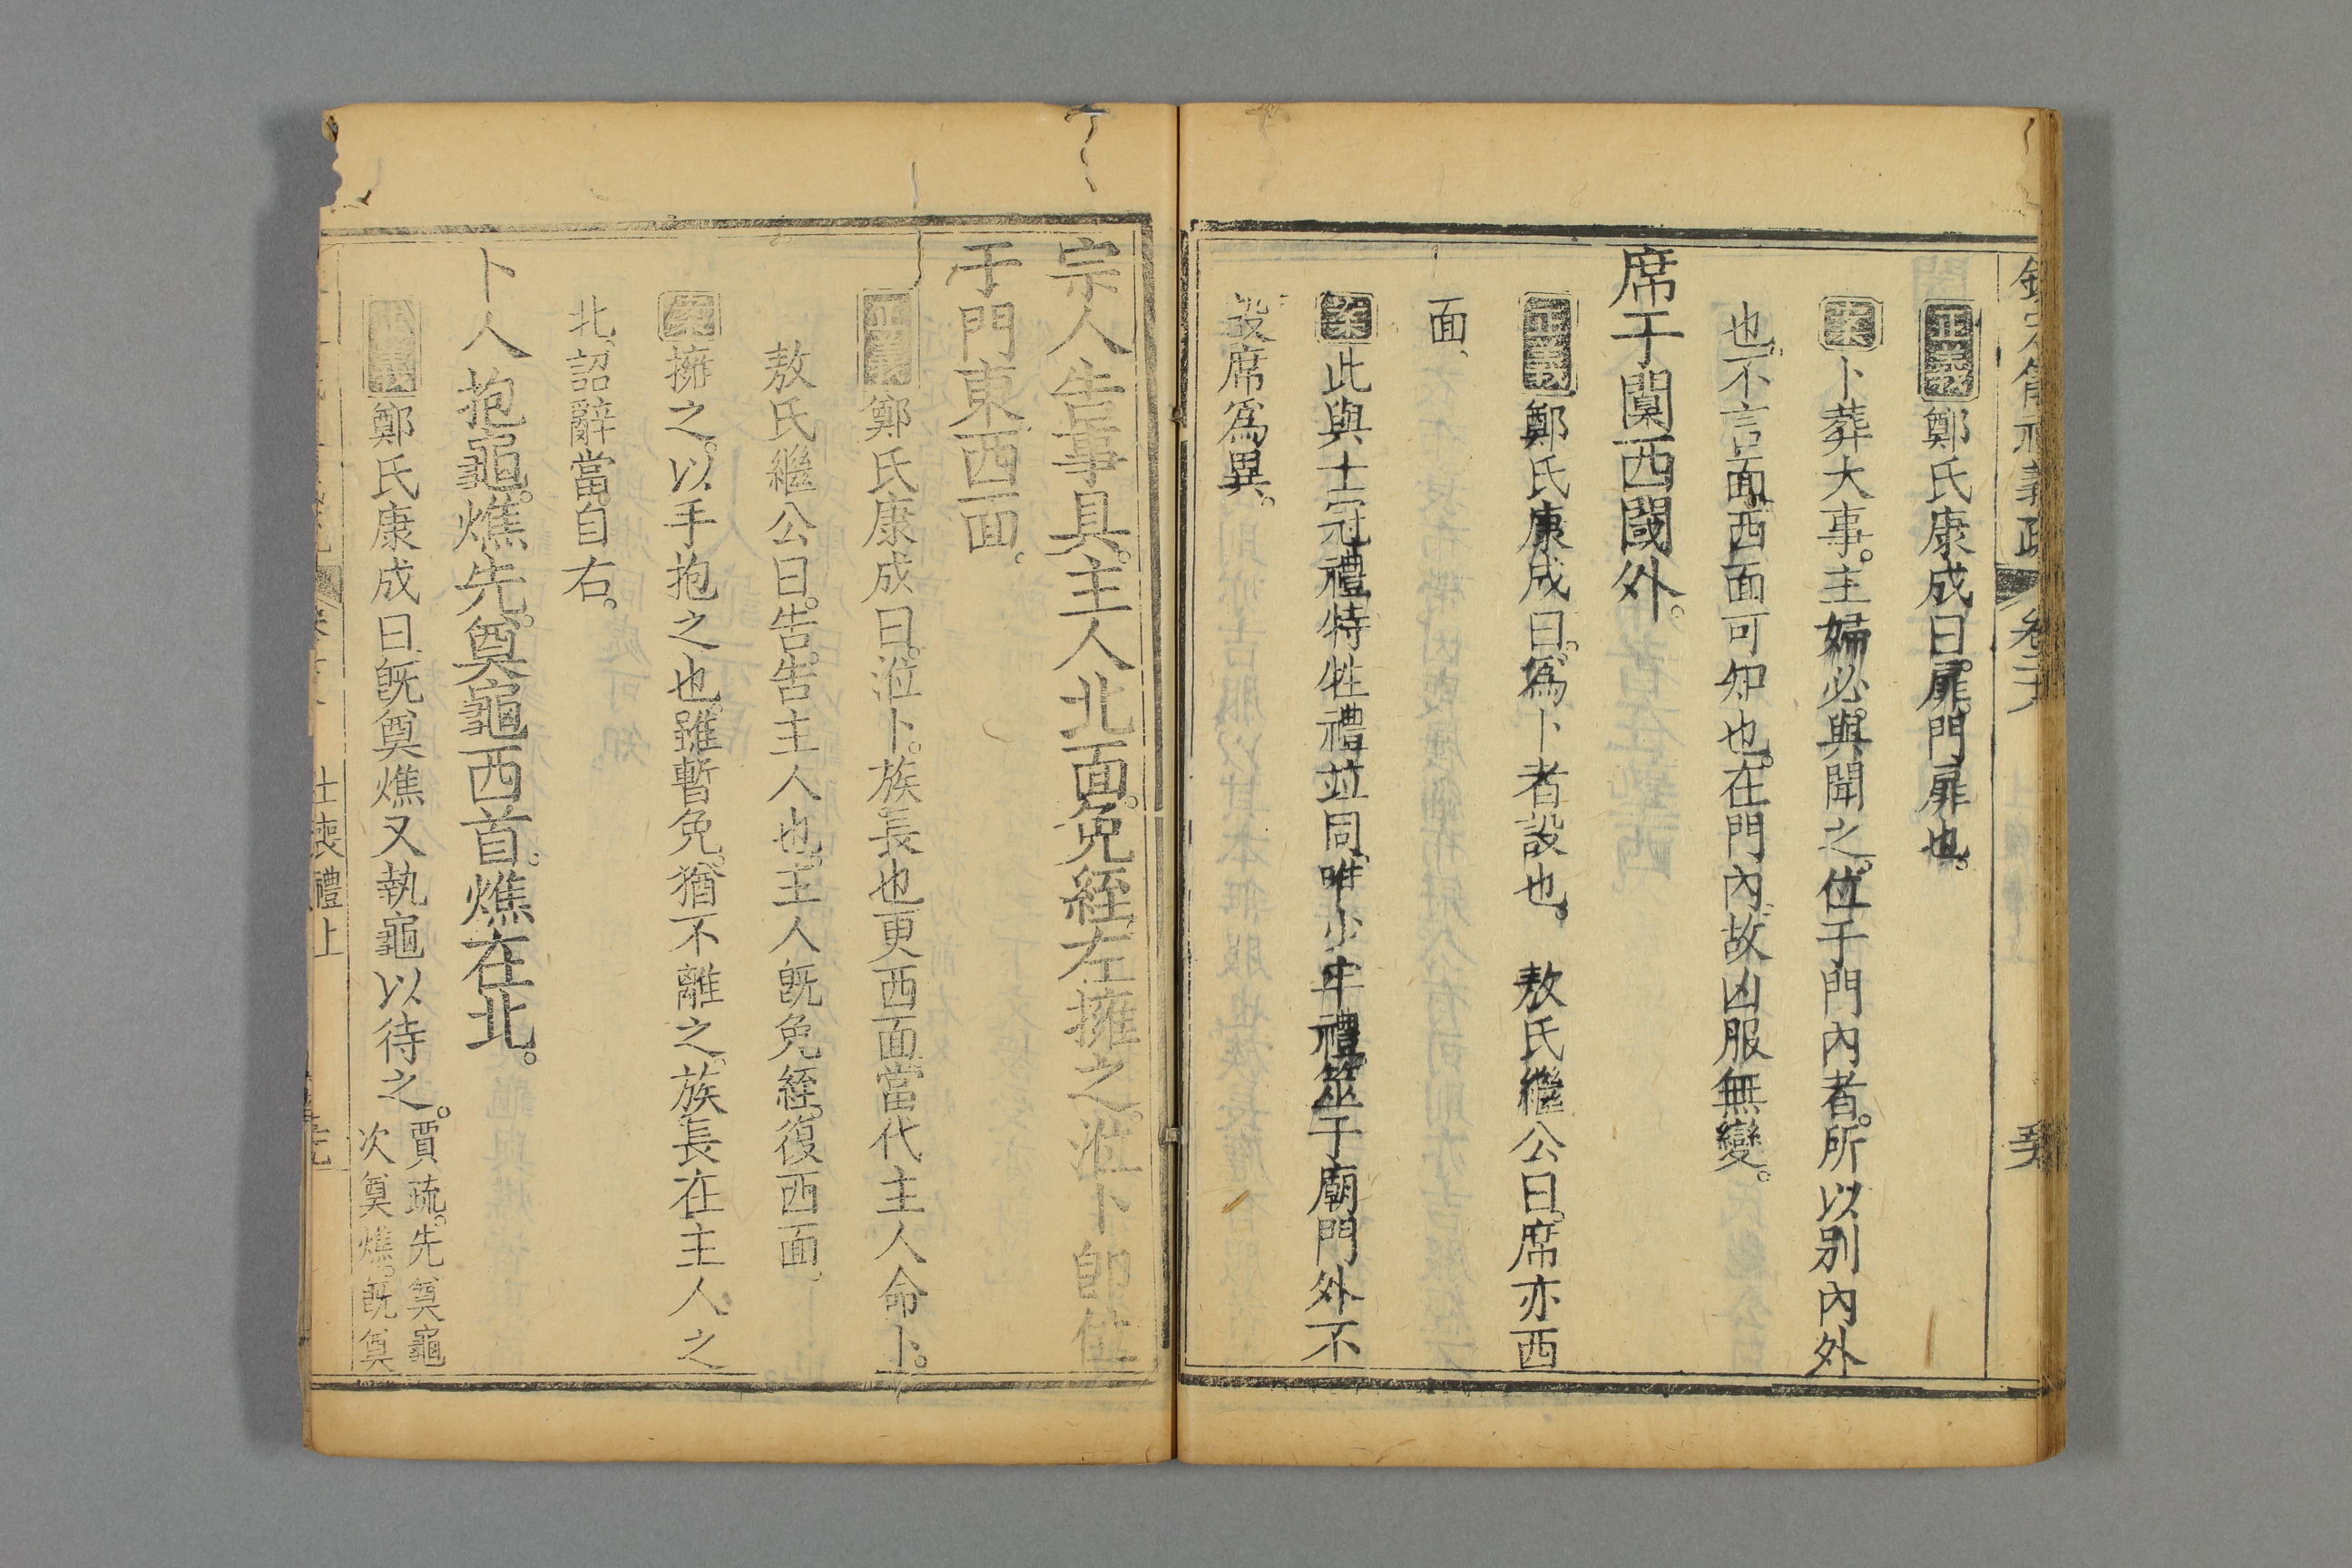 欽定儀禮義疏 卷二十八
正義鄭氏康成曰扉門扉也
案卜葬大事主婦必與聞之位于門內者所以別內外
也不言面西面可知也在門內故凶服無變
席于闑西閾外
正義鄭氏康成曰為卜者設也 敖氏繼公曰席亦西
面
案此與士冠禮特牲禮竝同唯少牢禮筮于廟門外不
設席爲異
宗人告事具主人北面免絰左擁之涖卜卽位
于門東西面
正義鄭氏康成曰涖卜族長也更西面當代主人命卜
敖氏繼公曰告告主人也主人旣免絰復西面
案擁之以手抱之也雖暫免猶不離之族長在主人之
北詔辭當自右
卜人抱龜燋先奠龜西首燋在北
正義鄭氏康成曰旣奠燋又執龜以待之賈疏先奠龜
次奠燋旣奠
士喪禮上